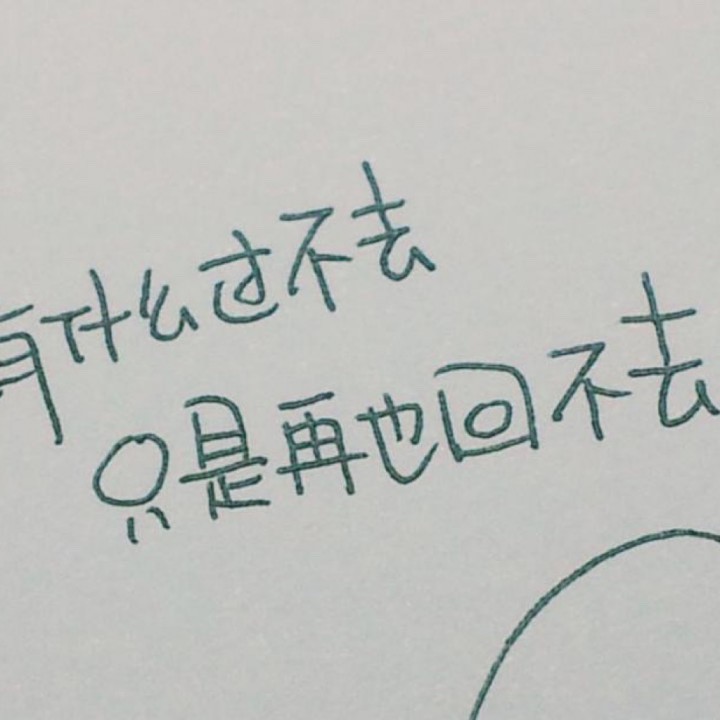 有什么过不去
只是再也回不去